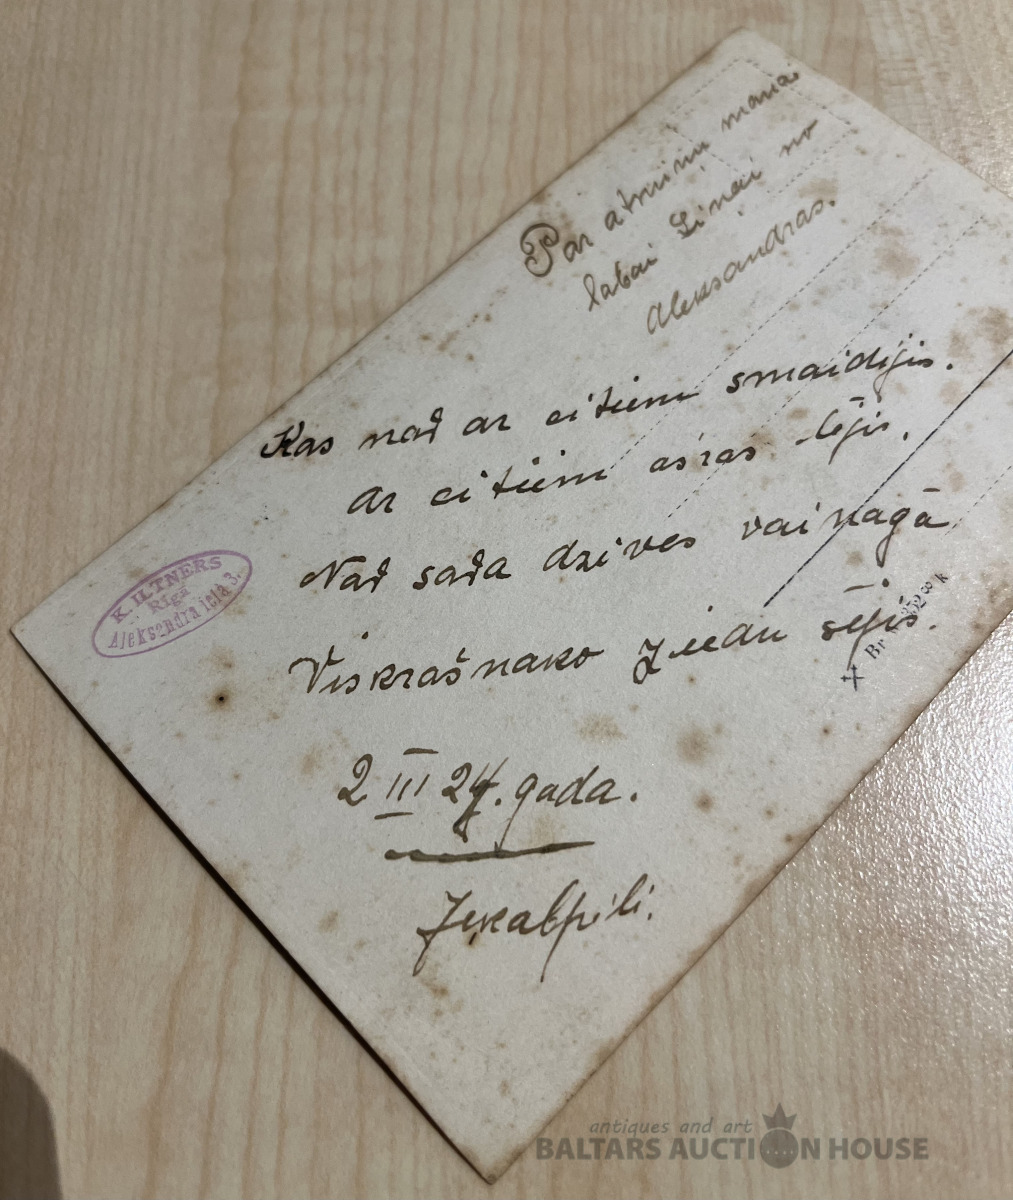 Par atmiņu manai
labai Linai no
Aleksandras.
Kas nav ar citiem smaidijis.
Ar citiem asras lējis.
Nav sava dzives vainagā
Viskrašnako ziedu sējis.
2 III 24. gada.
Jekabpili.
K. ILTNERS
Rīgā
Aleksandra ielā 3.
Br
antiques and art
BALTARS AUCTION HOUSE